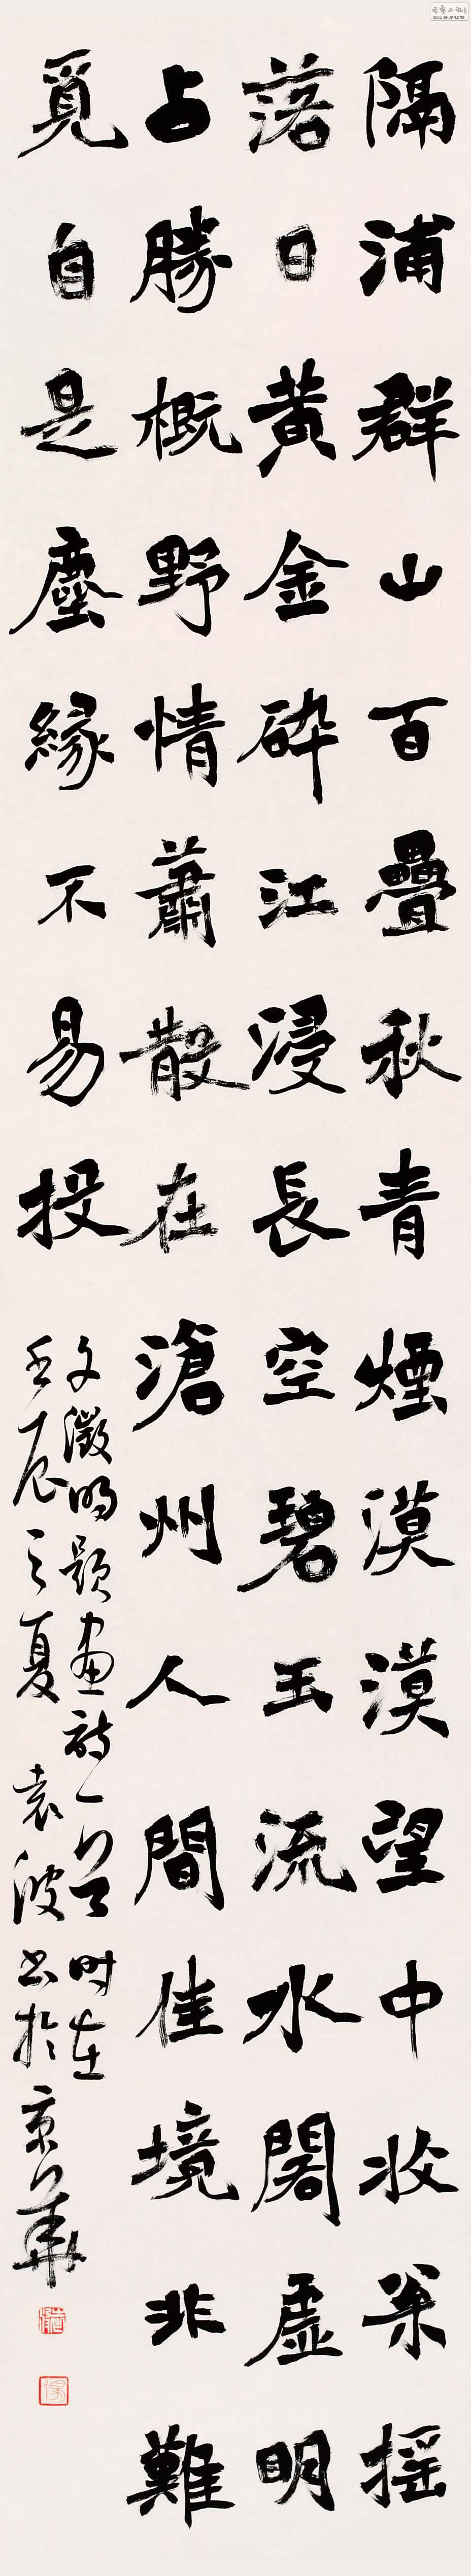 隔浦群山百疊秋青煙漠漠望中收梁摇
落日黃金碎江浸長空碧玉流水閣虛明
占勝概野情蕭散在滄州人間佳境非難
覓自是塵緣不易投
文徵明題畫詩一首时在
壬辰之夏袁波书於京華